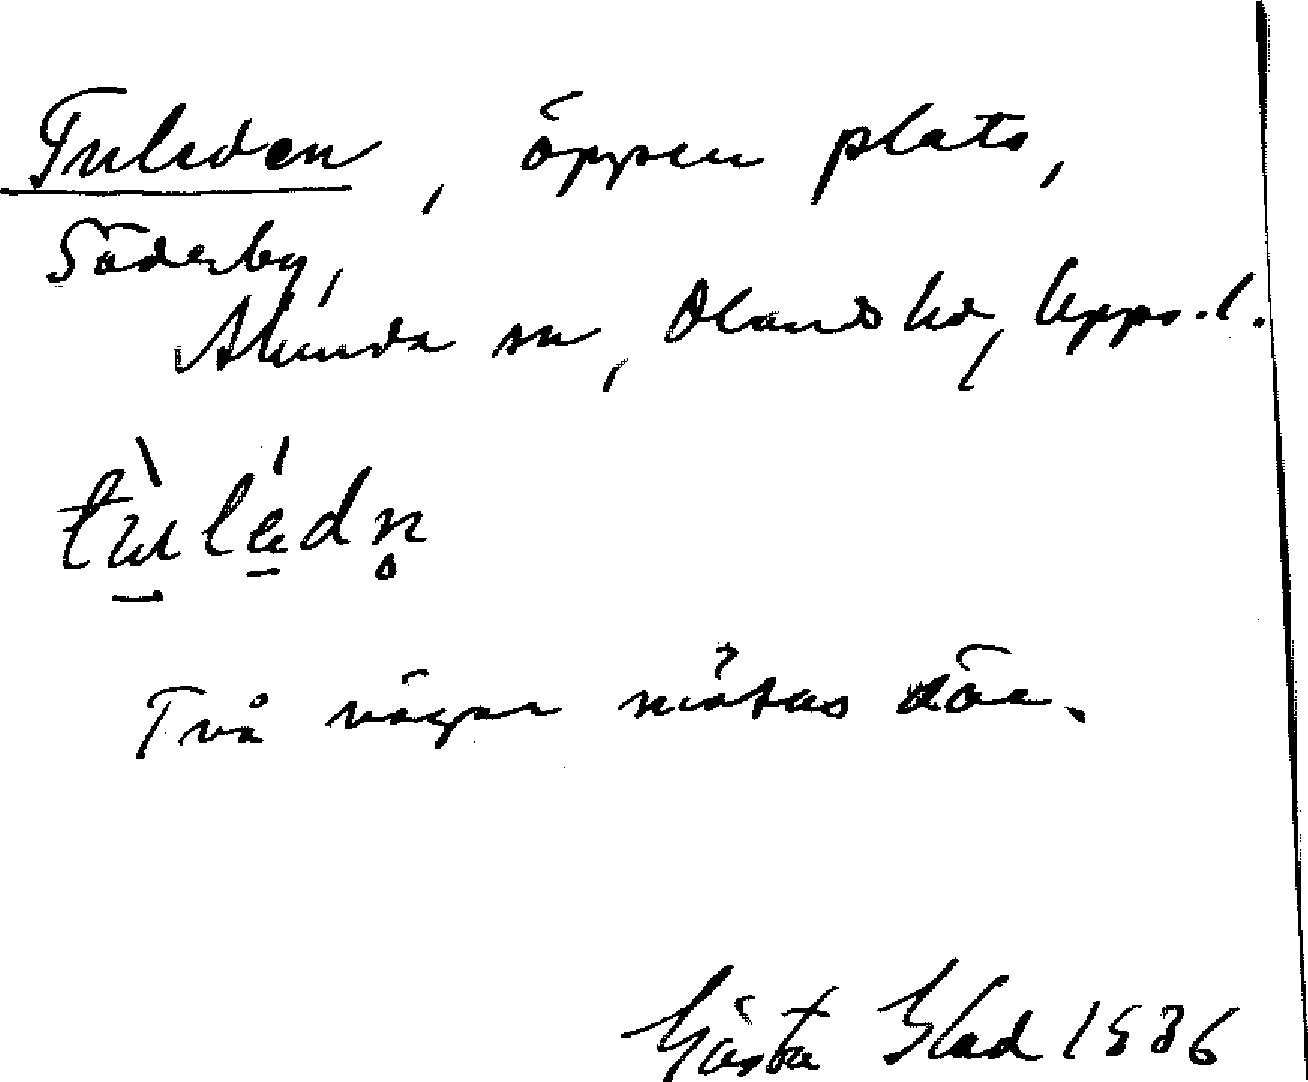 Tuleden, öppen plats,
Söderby,
Alunda sn, Olands hd, Upps.l.
tùlédn̥
Två vägar mötas där.
Gösta Blad 1936